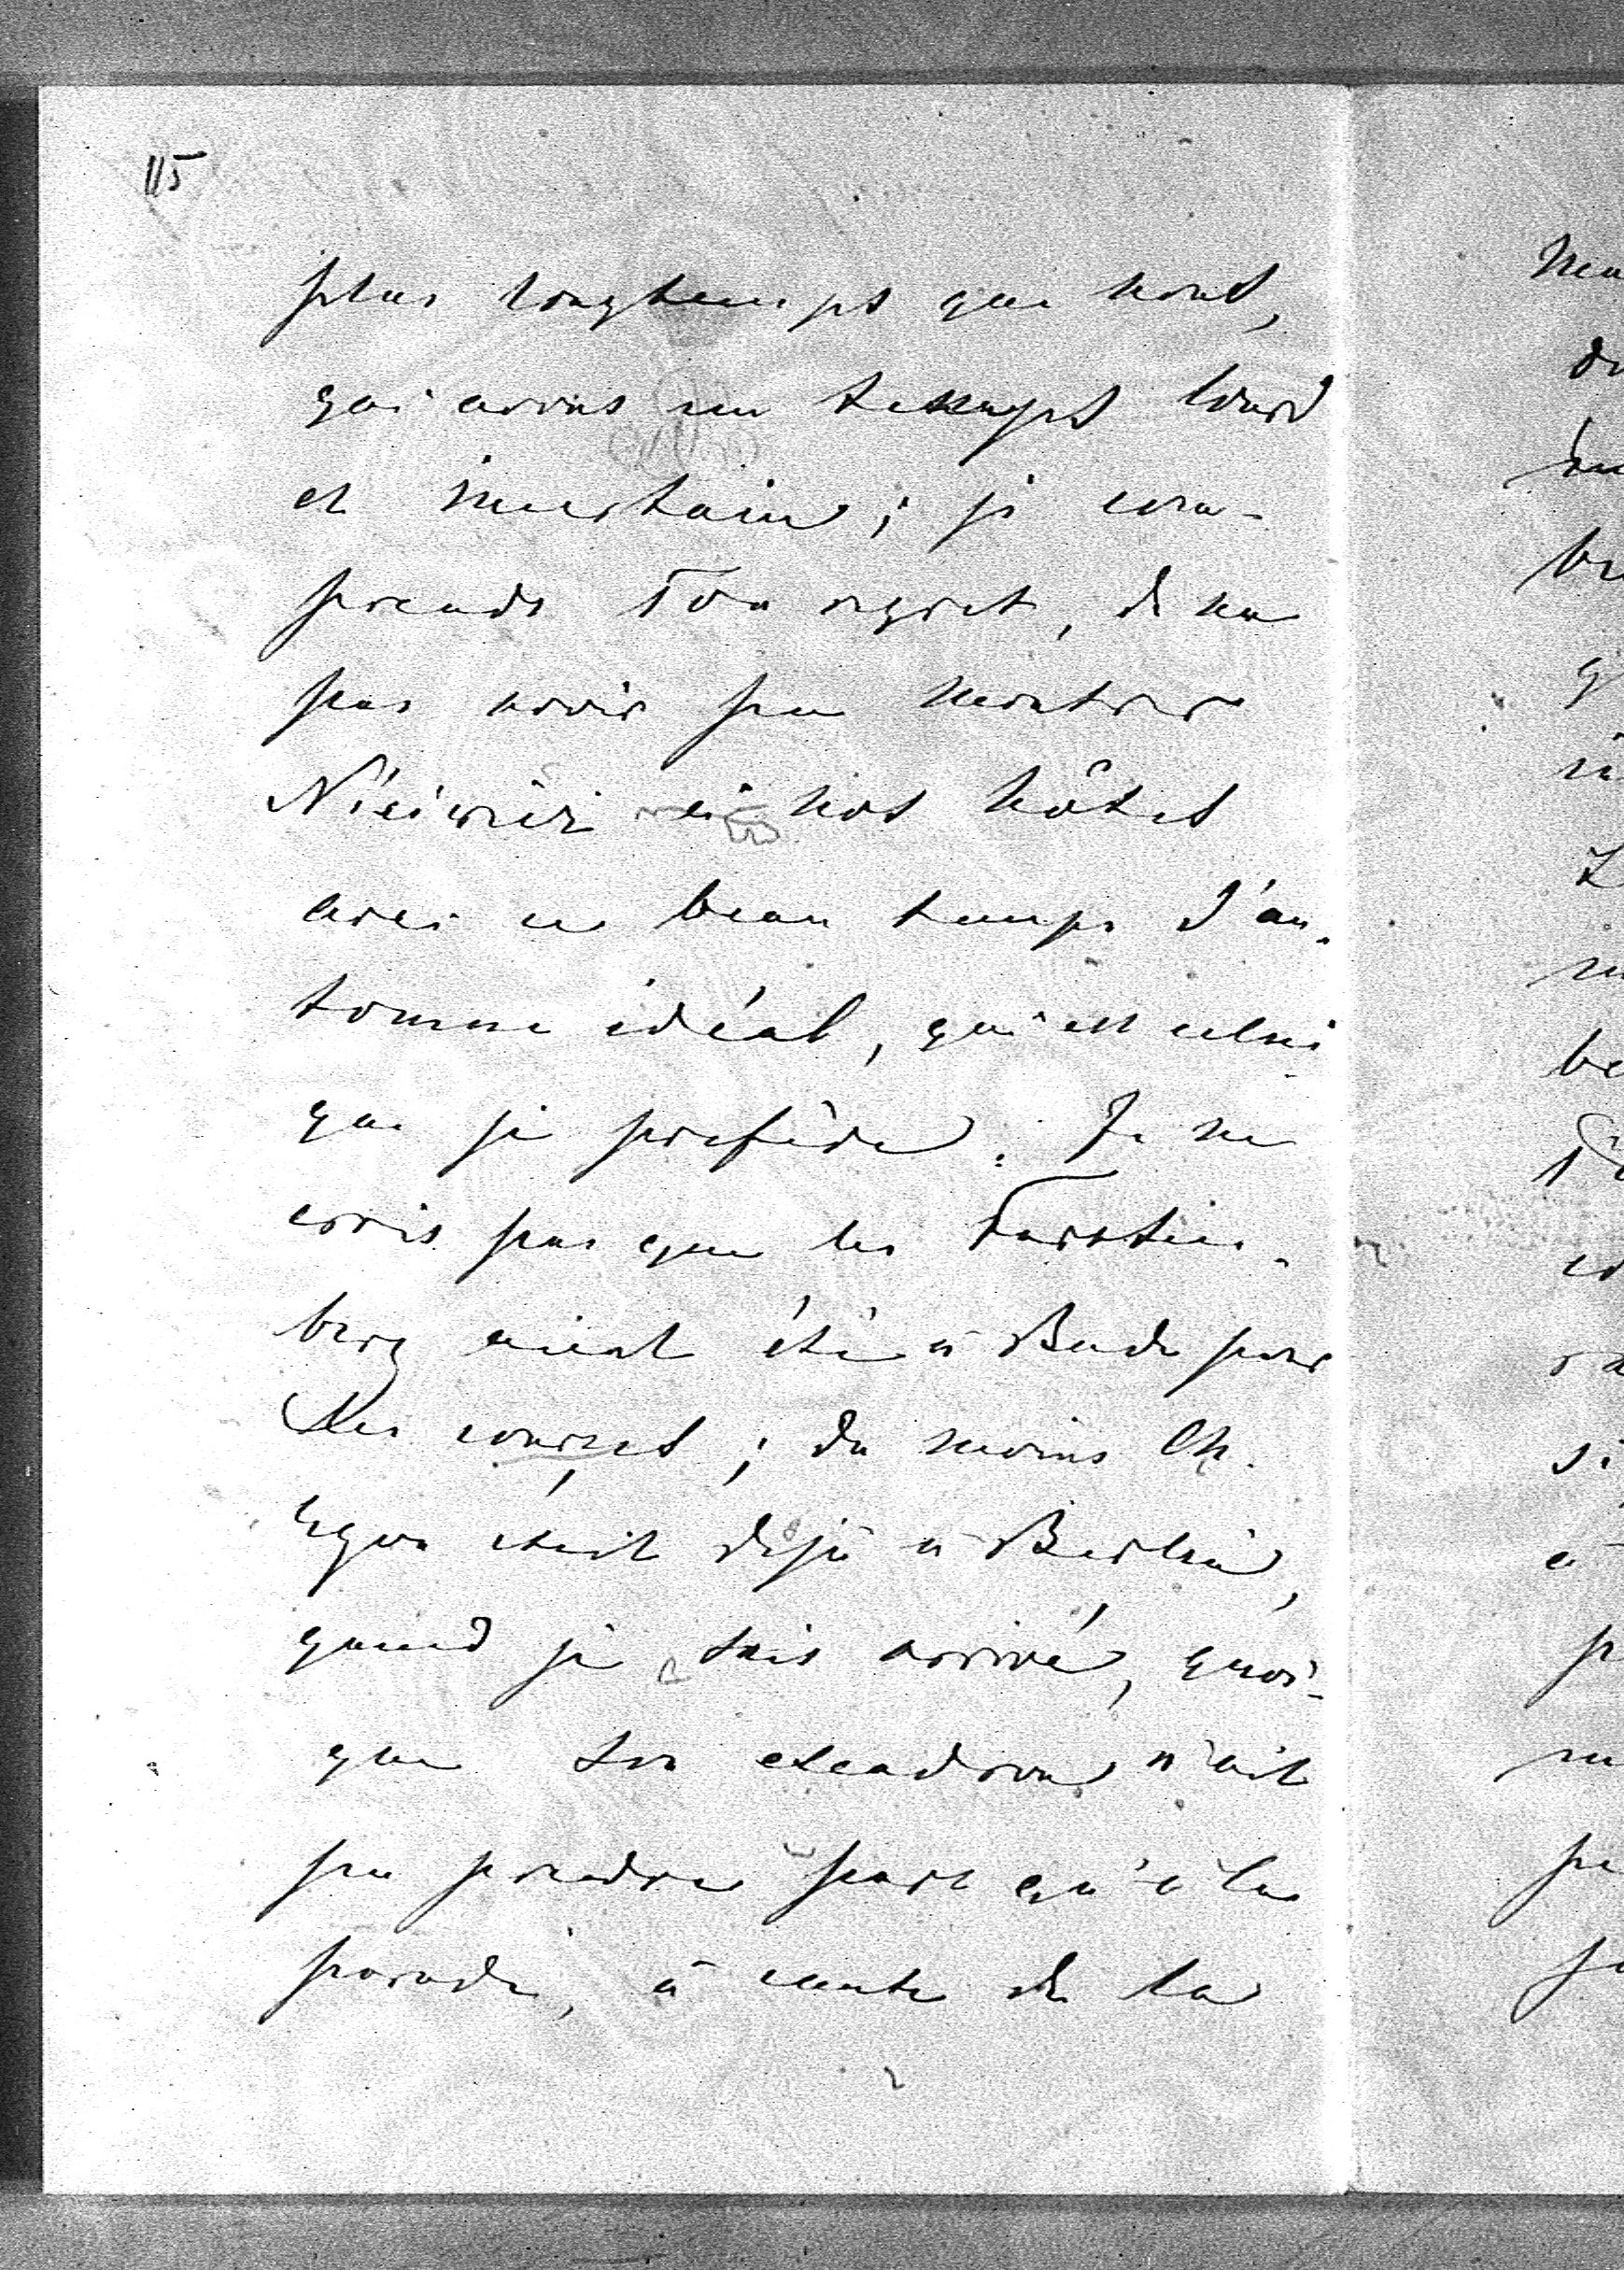 115
plus longtemps que nous,
qui avons un temps lourd
et incertain; je com-
prends Ton regret, de ne
pas avoir pu montrer
Nieśwież à nos hôtes
avec ce beau temps d'au-
tomne idéal, qui est celui
que je préfère. Je ne
crois pas que les Fursten-
berg aient été à Bade pour
les courses; du moins Ch.
Egon était déjà à Berlin,
quand je suis arrivé, quoi-
que son escadron n'ait
pu prendre part qu'à la
parade, à cause de la